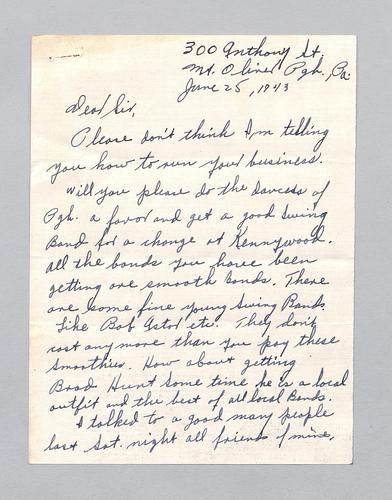 300 Anthony St.
Mt. Oliver Pgh. Pa.
June 25, 1943
Dear Sir,
Please don't think I'm telling
you how to run your business.
Will you please do the dancers of
Pgh. a favor and get a good Swing
Band for a change at Kennywood.
All the bands you have been
getting are smooth bands. There
are some fine young Swing Bands
like Bob Astor etc. They don't
cost anymore than you pay these
Smoothies. How about getting
Brad Hunt some time he is a local
outfit and the best of all local Bands.
I talked to a good many people
last Sat. night all friends of mine,